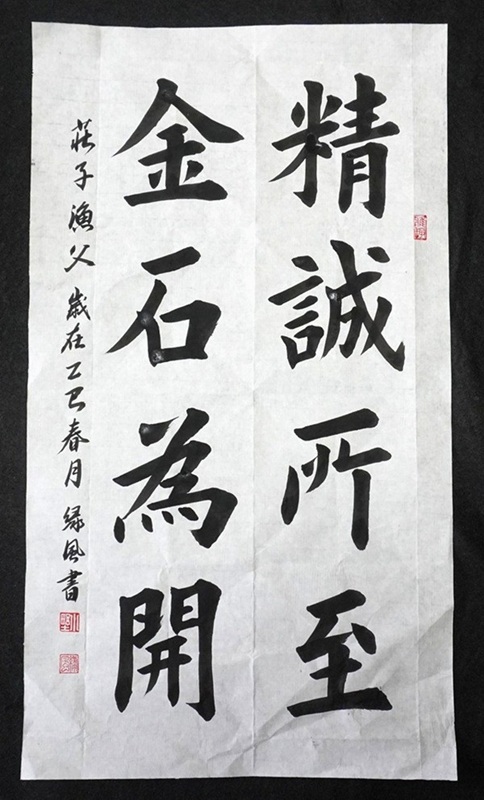 精誠所至
金石為開
莊子漁父 歲在乙巳春月 緑風書